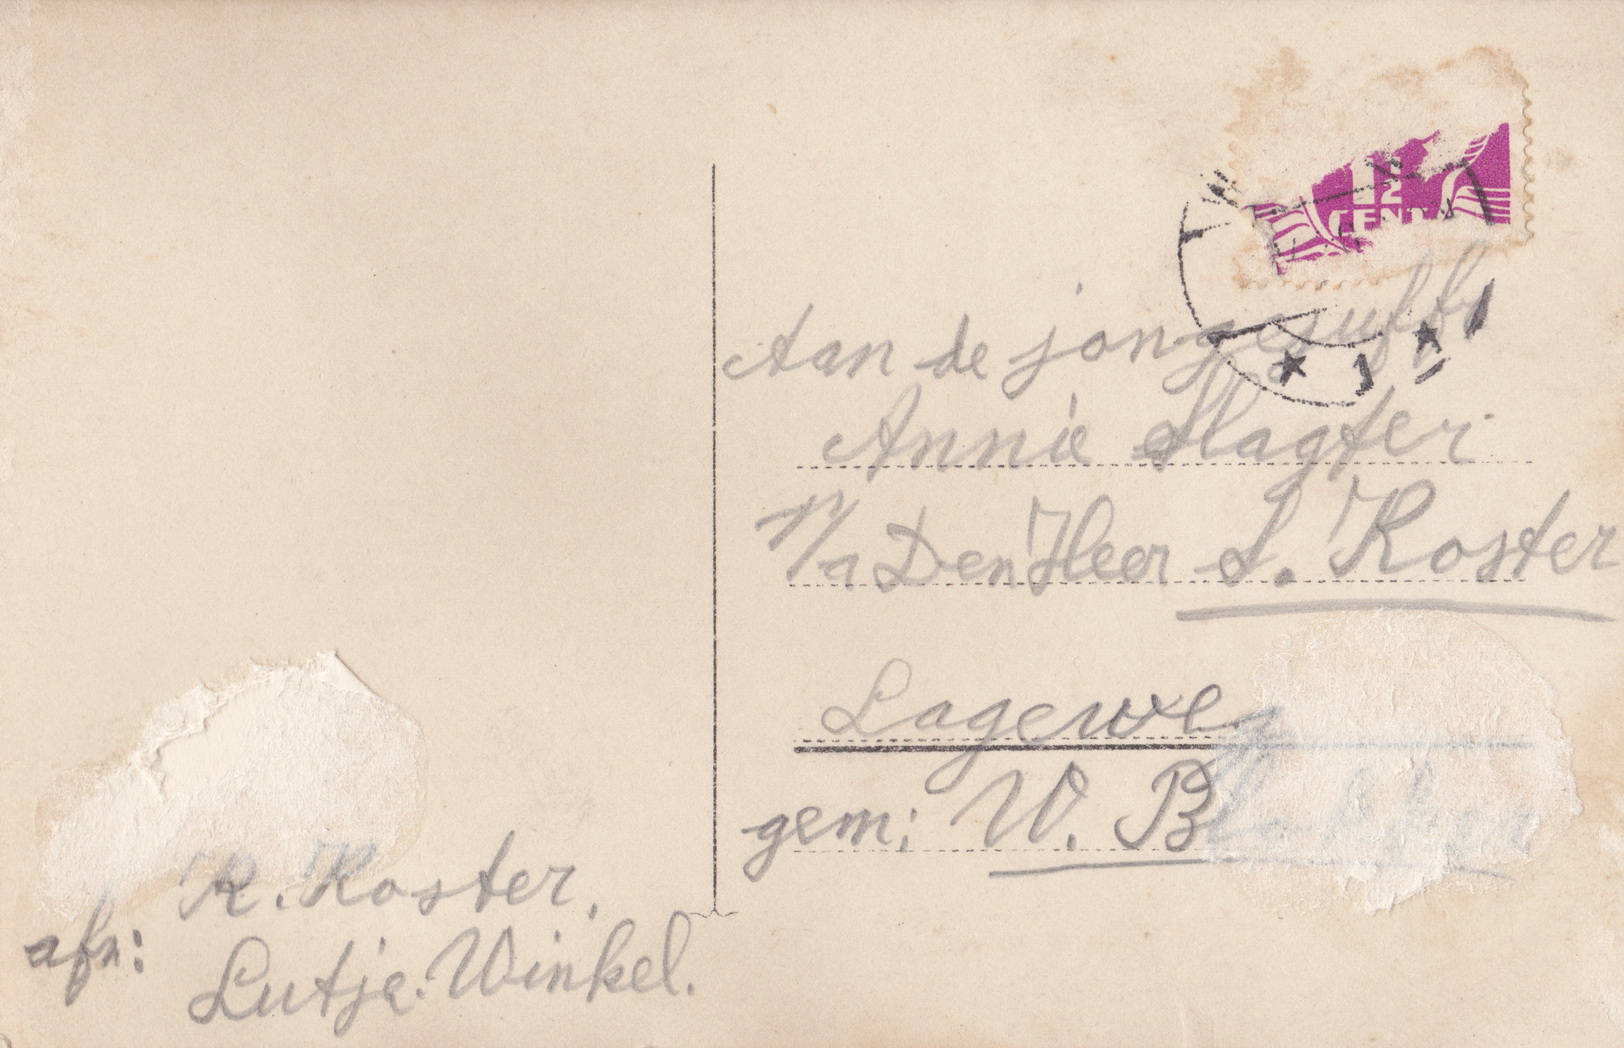 CENT
Aan de jongejuffr
Annie Slagter
p/a Den Heer S. Koster
Lageweg
gem: W. B
afz: K. Koster.
Lutje-Winkel.